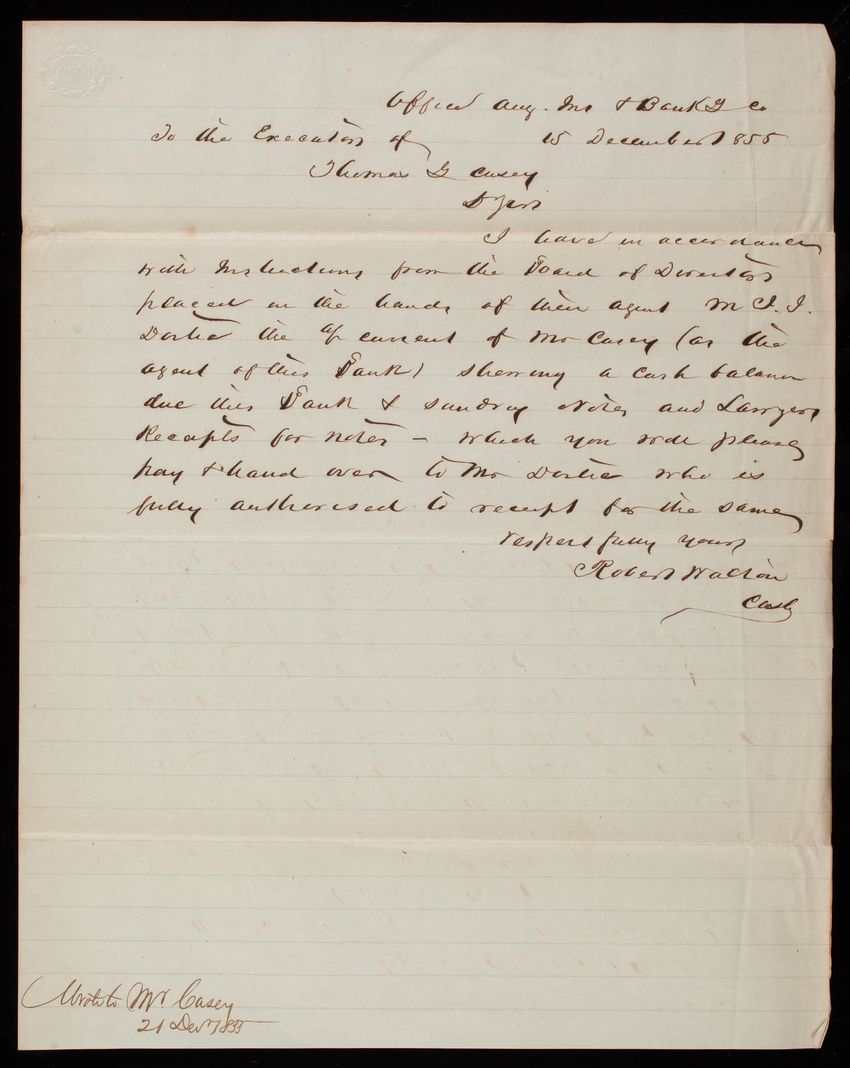 Office Aug. Ins & Bankg Co
To the Executors of 15 December 1855
Thomas G Casey
D Sirs
I have in accordance
with Instructions from the Board of Directors
placed in the hands of their agent Mr J. J.
the a/c current of Mr Casey (as the
agent of this Bank) shewing a cash balance
due this Bank & sundry Notes and Lawyers
Recepts for notes - which you will please
pay & hand over to Mr who is
fully authorised to receipt for the same
respectfully yours
Robert Walton
Cash
Wrote to Mr. Casey
21 Decr 1855